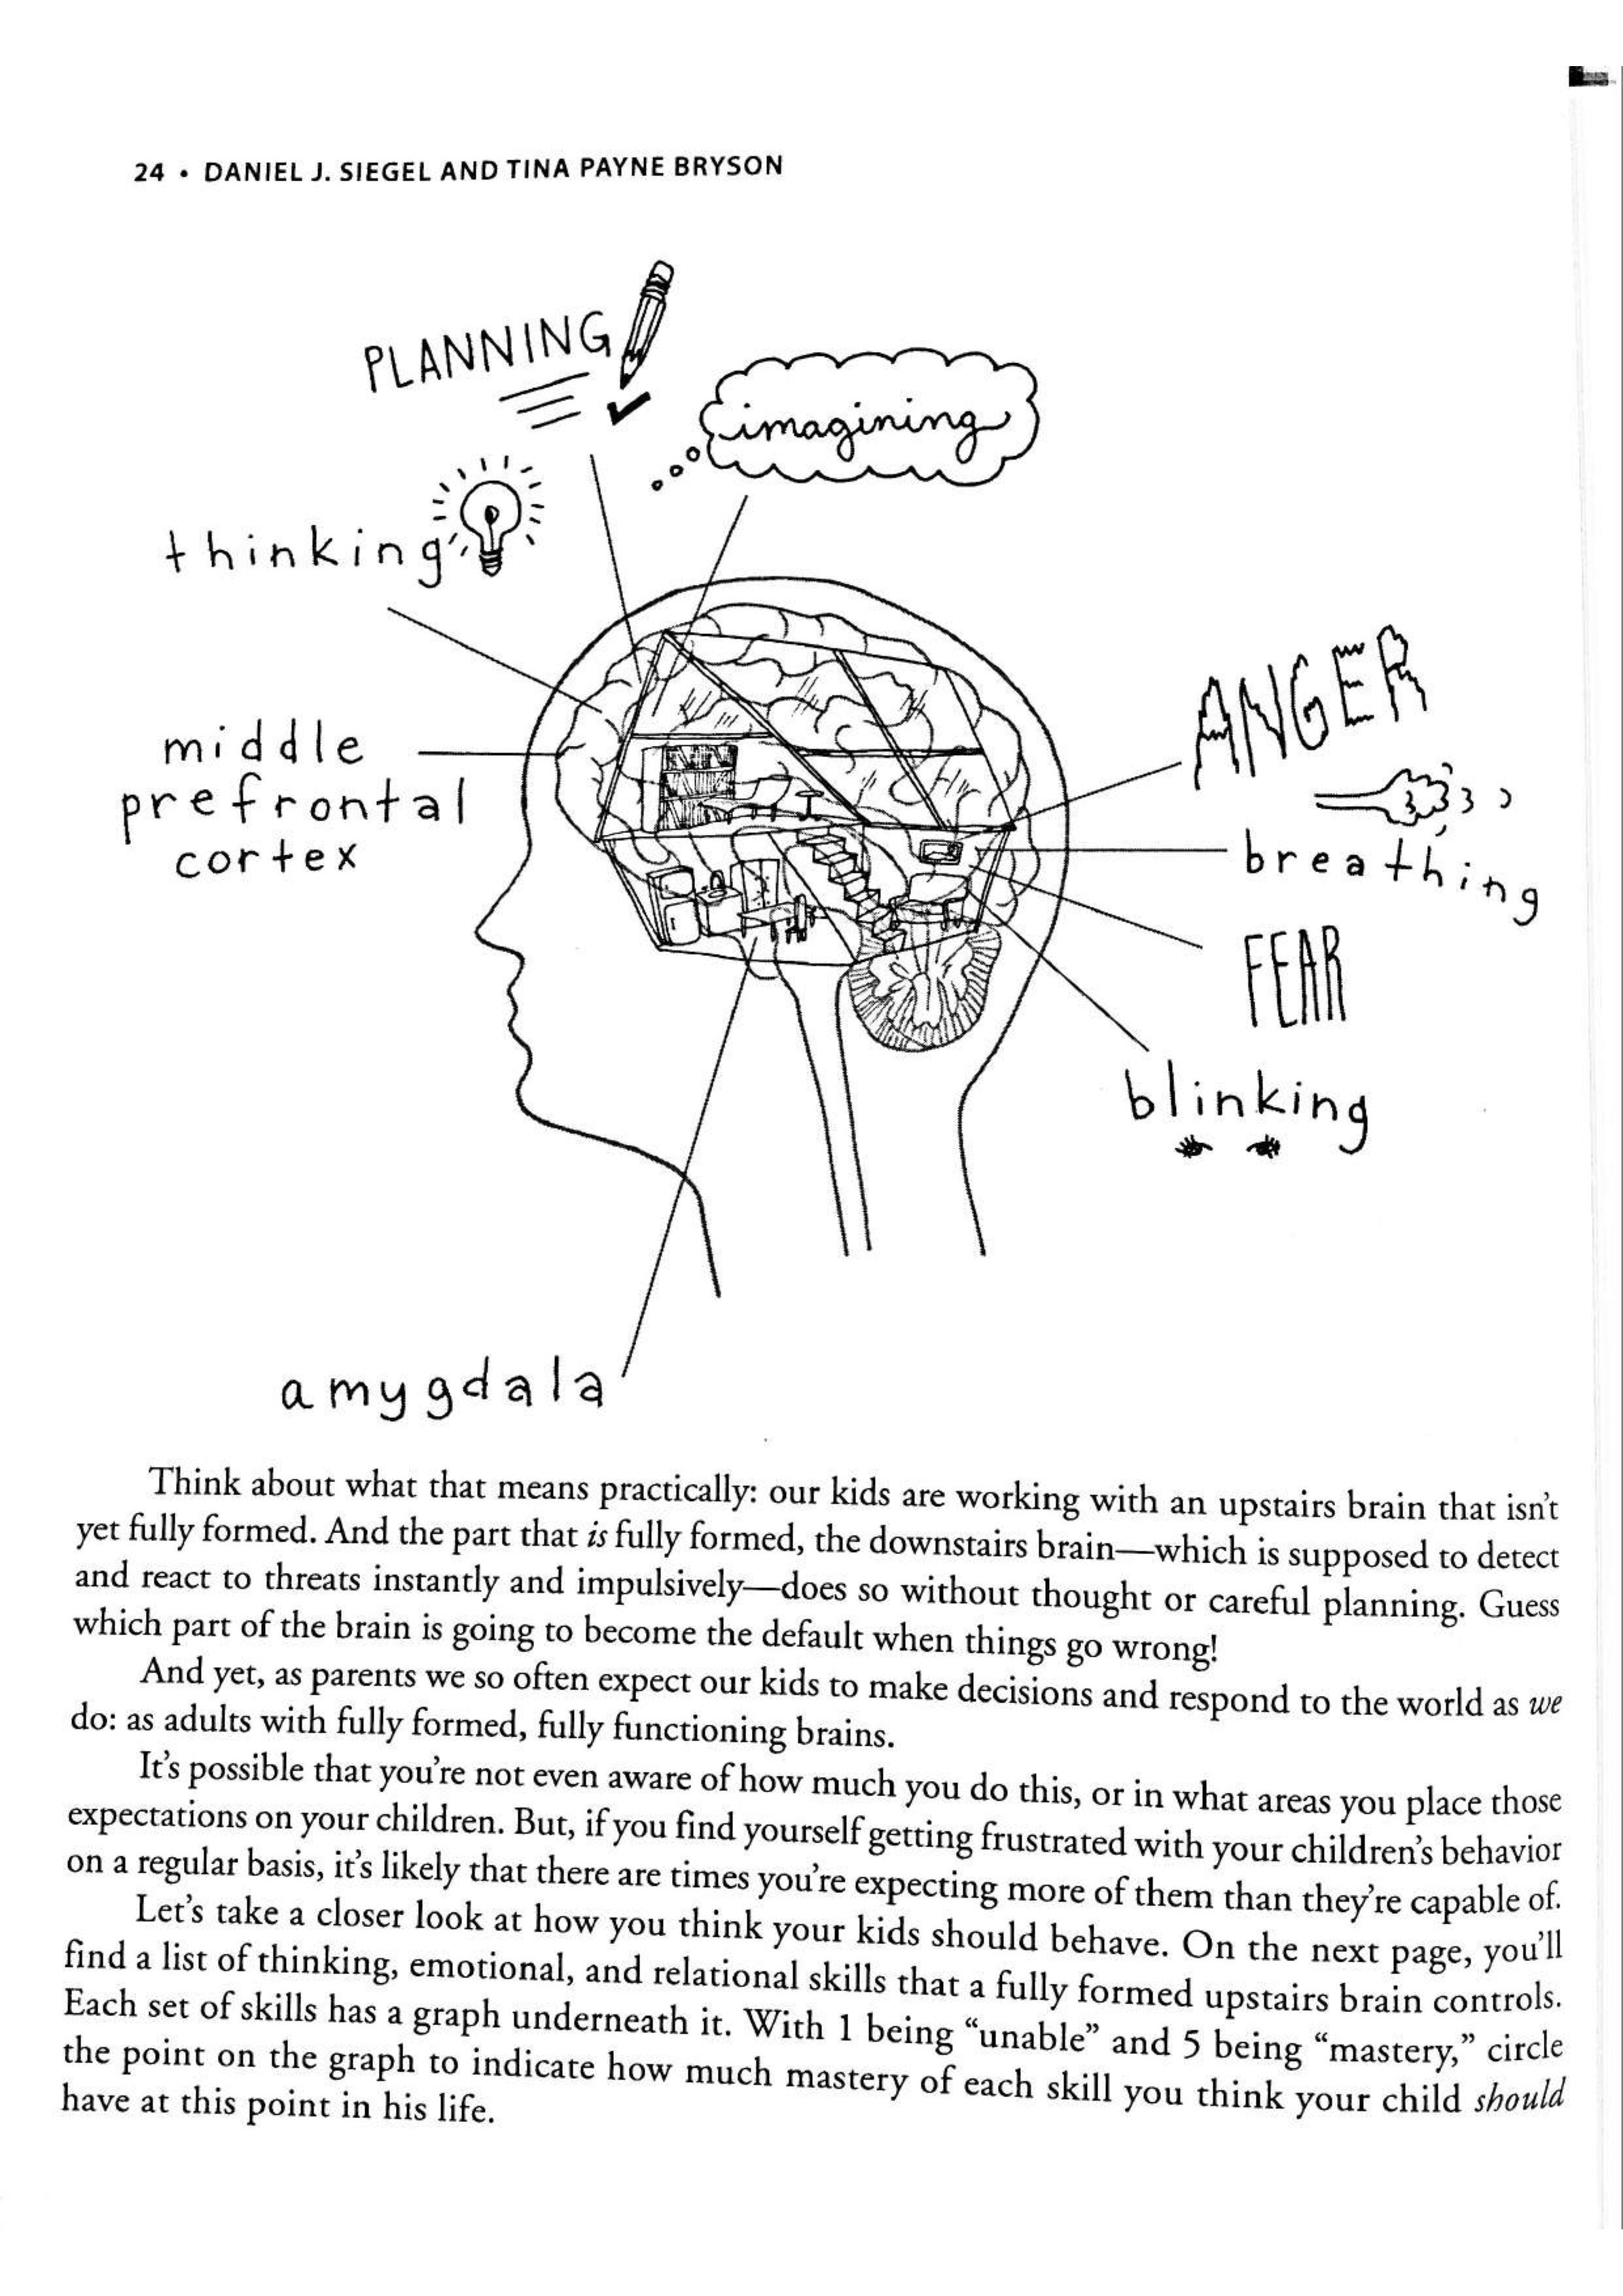 24 • DANIEL J. SIEGEL AND TINA PAYNE BRYSON
PLANNING
imagining
thinking
ANGER
middle
prefrontal
cortex
breathing
FEAR
blinking
amygdala
Think about what that means practically: our kids are working with an upstairs brain that isn't
yet fully formed. And the part that is fully formed, the downstairs brain—which is supposed to detect
and react to threats instantly and impulsively—does so without thought or careful planning. Guess
which part of the brain is going to become the default when things go wrong!
And yet, as parents we so often expect our kids to make decisions and respond to the world as we
do: as adults with fully formed, fully functioning brains.
It's possible that you're not even aware of how much you do this, or in what areas you place those
expectations on your children. But, if you find yourself getting frustrated with your children's behavior
on a regular basis, it's likely that there are times you're expecting more of them than they're capable of.
Let's take a closer look at how you think your kids should behave. On the next page, you'll
find a list of thinking, emotional, and relational skills that a fully formed upstairs brain controls.
Each set of skills has a graph underneath it. With 1 being “unable” and 5 being “mastery,” circle
the point on the graph to indicate how much mastery of each skill you think your child should
have at this point in his life.